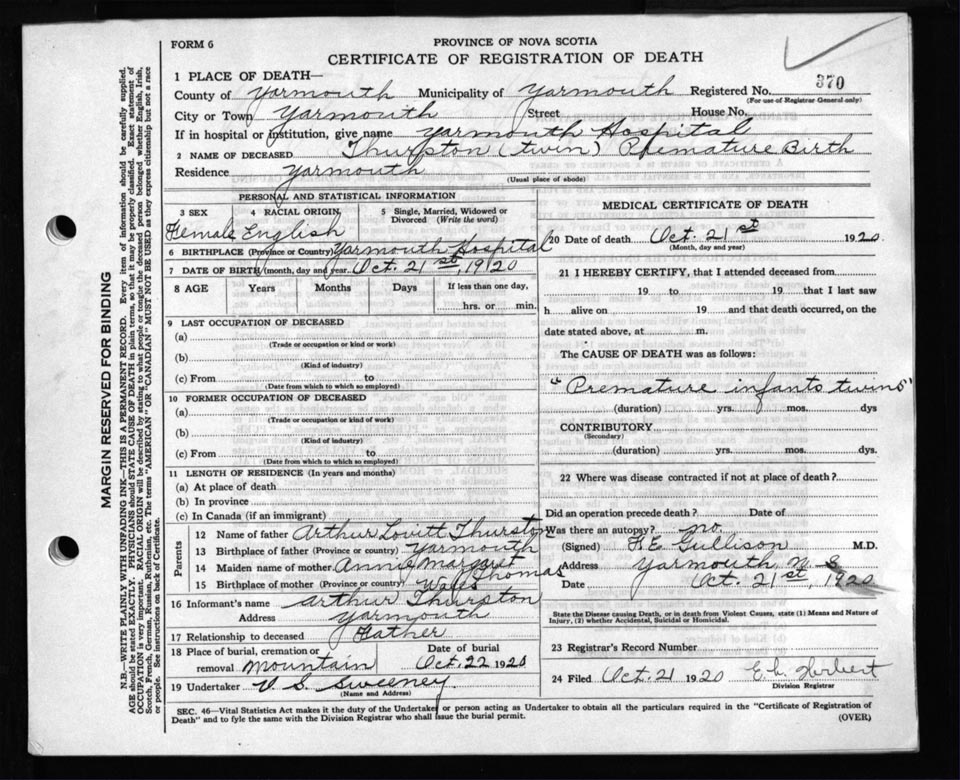 FORM 6
PROVINCE OF NOVA SCOTIA
CERTIFICATE OF REGISTRATION OF DEATH
370
1 PLACE OF DEATH—
County of Yarmouth Municipality of Yarmouth Registered No.
(For use of Registrar General only)
City or Town Yarmouth Street House No.
If in hospital or institution, give name Yarmouth Hospital
2 NAME OF DECEASED Thurston (twin) Premature Birth
Residence Yarmouth
(Usual place of abode)
PERSONAL AND STATISTICAL INFORMATION
3 SEX 4 RACIAL ORIGIN 5 Single, Married, Widowed or Divorced (Write the word)
Female English
6 BIRTHPLACE (Province or Country) Yarmouth Hospital
7 DATE OF BIRTH (month, day and year) Oct. 21st, 1920
8 AGE Years Months Days If less than one day,
hrs. or min.
9 LAST OCCUPATION OF DECEASED
(a)
(Trade or occupation or kind of work)
(b)
(Kind of industry)
(c) From to
(Date from which to which so employed)
10 FORMER OCCUPATION OF DECEASED
(a)
(Trade or occupation or kind of work)
(b)
(Kind of industry)
(c) From to
(Date from which to which so employed)
11 LENGTH OF RESIDENCE (In years and months)
(a) At place of death
(b) In province
(c) In Canada (if an immigrant)
Parents
12 Name of father Arthur Lovitt Thurston
13 Birthplace of father (Province or country) Yarmouth
14 Maiden name of mother Annie Margaret Thomas
15 Birthplace of mother (Province or country) Wales
16 Informant's name Arthur Thurston
Address Yarmouth
17 Relationship to deceased Father
18 Place of burial, cremation or removal Mountain
Date of burial Oct. 22 1920
19 Undertaker V. S. Sweeney
(Name and Address)
MEDICAL CERTIFICATE OF DEATH
20 Date of death Oct. 21st 1920
(Month, day and year)
21 I HEREBY CERTIFY, that I attended deceased from
19 to 19 that I last saw
h alive on 19 and that death occurred, on the
date stated above, at m.
The CAUSE OF DEATH was as follows:
"Premature infants twins"
(duration) yrs. mos. dys
CONTRIBUTORY
(Secondary)
(duration) yrs. mos. dys.
22 Where was disease contracted if not at place of death?
Did an operation precede death? Date of
Was there an autopsy? no.
(Signed) F E Gullison M.D.
Address Yarmouth, N. S.
Date Oct. 21st, 1920
State the Disease causing Death, or in death from Violent Causes, state (1) Means and Nature of Injury, (2) whether Accidental, Suicidal or Homicidal.
23 Registrar's Record Number
24 Filed Oct. 21 1920 E. L. Herbert
Division Registrar
SEC. 46—Vital Statistics Act makes it the duty of the Undertaker or person acting as Undertaker to obtain all the particulars required in the "Certificate of Registration of
Death" and to fyle the same with the Division Registrar who shall issue the burial permit.
(OVER)
MARGIN RESERVED FOR BINDING
N.B.—WRITE PLAINLY WITH UNFADING INK—THIS IS A PERMANENT RECORD. Every item of information should be carefully supplied.
AGE should be stated EXACTLY. PHYSICIANS should STATE CAUSE OF DEATH in plain terms, so that it may be properly classified. Exact statement of
OCCUPATION is very important. RACIAL ORIGIN will be described by stating to what people or tongue the deceased person belonged whether English, Irish,
Scotch, French, German, Russian, Ruthenian, etc. The terms "AMERICAN" OR "CANADIAN" MUST NOT BE USED as they express citizenship but not a race
or people. See instructions on back of Certificate.